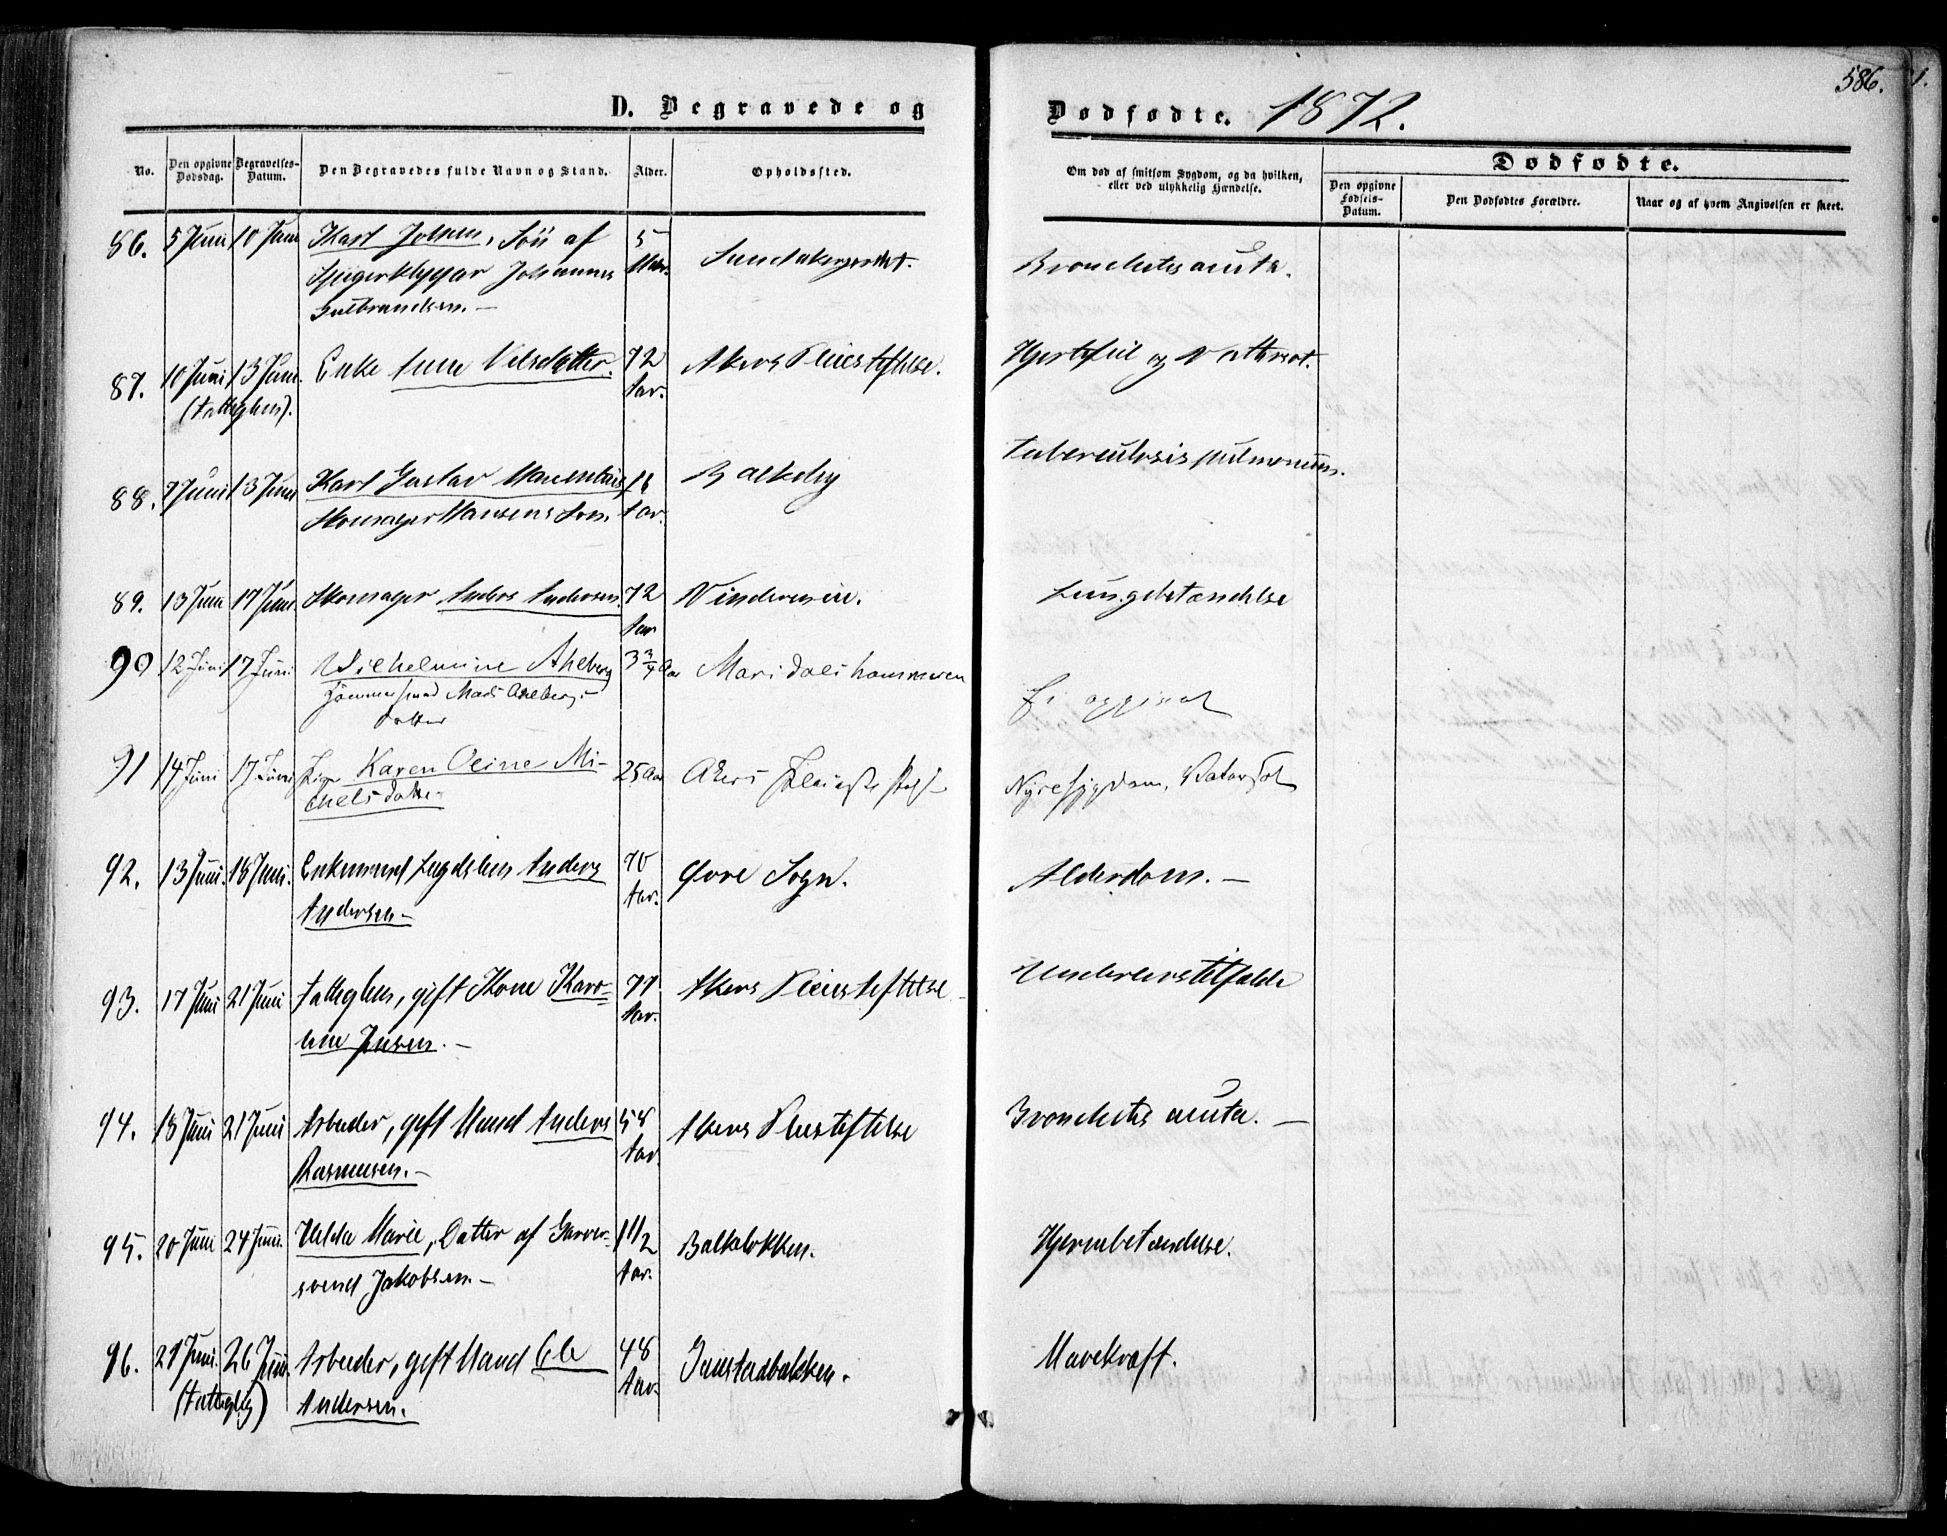 D. Begravede og
Dødfødte. 1872.
586.
No.
Den opgivne Dødsdag.
Begravelses-Datum.
Den Begravedes fulde Navn og Stand.
Alder.
Opholdssted.
Om død af smitsom Sygdom, og da hvilken,
eller ved ulykkelig Hændelse.
Dødfødte.
Den opgivne Fødsels-Datum.
Den Dødfødtes Forældre.
Naar og af hvem Angivelsen er skeet.
86. 5 Juni 10 Juni Karl Johan, Søn af 5
Johannes
Gulbrandsen.—
Bronchitis acuta.
87. 10 Juni 13 Juni. Enke Anne Nilsdatter. 72 Akers Pleiestiftelse. Hjertefeil og Vattersot.
Aar.
88. 7 Juni 13 Juni Karl Gustav Balkeby Tuberculosis pulmonum.
Skomager Hansens Søn. Aar.
89. 13 Juni 17 Juni Skomager Anders Andersen. 72 Vinderen Lungebetændelse
Aar
90 12 Juni 17 Juni Wilhelmine Ahlberg 3 3/4 Aar Maridalshammeren Ei opgivet
Tømmermand Mads Ahlbergs
Datter
91 14 Juni 17 Juni Pige Karen Oline Mi- 25 Aar Akers Pleiestiftels Nyresygdom, Vatersot
chelsdatter
92. 13 Juni. 18 Juni. Enkemand Lægdslem Anders 70 Øvre Sogn. Alderdom.—
Andersen— Aar.
93. 17 Juni 21 Juni Fattiglem, gift Kone Karo- 77 Akers Pleiestiftelse Underlivstilfælde
line Jensen.— Aar.
94. 18 Juni 21 Juni Arbeider, gift Mand Anders 58 Akers Pleiestiftelse Bronchitis acuta.—
Rasmusen.— Aar.
95. 20 Juni 24 Juni. Hilda Marie, Datter af Garver- 1 1/2 Balkeløkken. Hjernebetændelse.
svend Jakobsen.— Aar.
96. 21 Juni. 26 Juni. Arbeider, gift Mand Ole 48 Mavekræft.
Andersen. Aar.